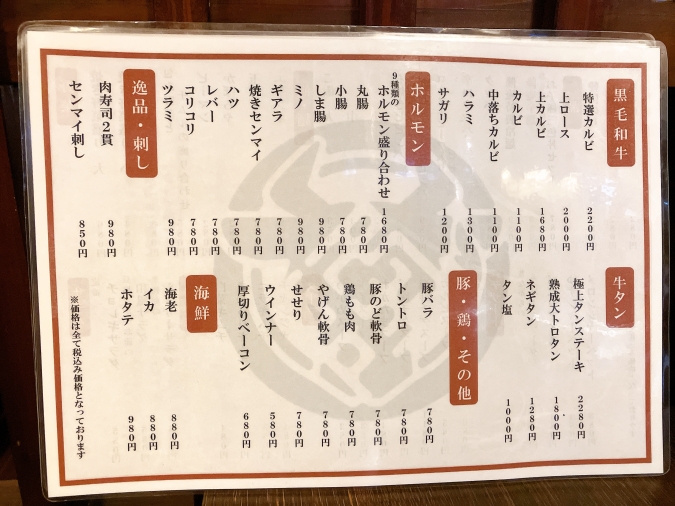 黒毛和牛
特選カルビ 2200円
上ロース 2000円
上カルビ 1680円
カルビ 1100円
中落ちカルビ 1100円
ハラミ 1300円
サガリ 1200円
ホルモン
9種類のホルモン盛り合わせ 1680円
丸腸 780円
小腸 780円
しま腸 980円
ミノ 980円
ギアラ 780円
焼きセンマイ 780円
ハツ 780円
レバー 780円
コリコリ 780円
ツラミ 980円
逸品・刺し
肉寿司2貫 980円
センマイ刺し 850円
牛タン
極上タンステーキ 2280円
熟成大トロタン 1800円
ネギタン 1280円
タン塩 1000円
豚・鶏・その他
豚バラ 780円
トントロ 780円
豚のど軟骨 780円
鶏もも肉 780円
やげん軟骨 780円
せせり 780円
ウインナー 580円
厚切りベーコン 680円
海鮮
海老 880円
イカ 880円
ホタテ 980円
※価格は全て税込み価格となっております